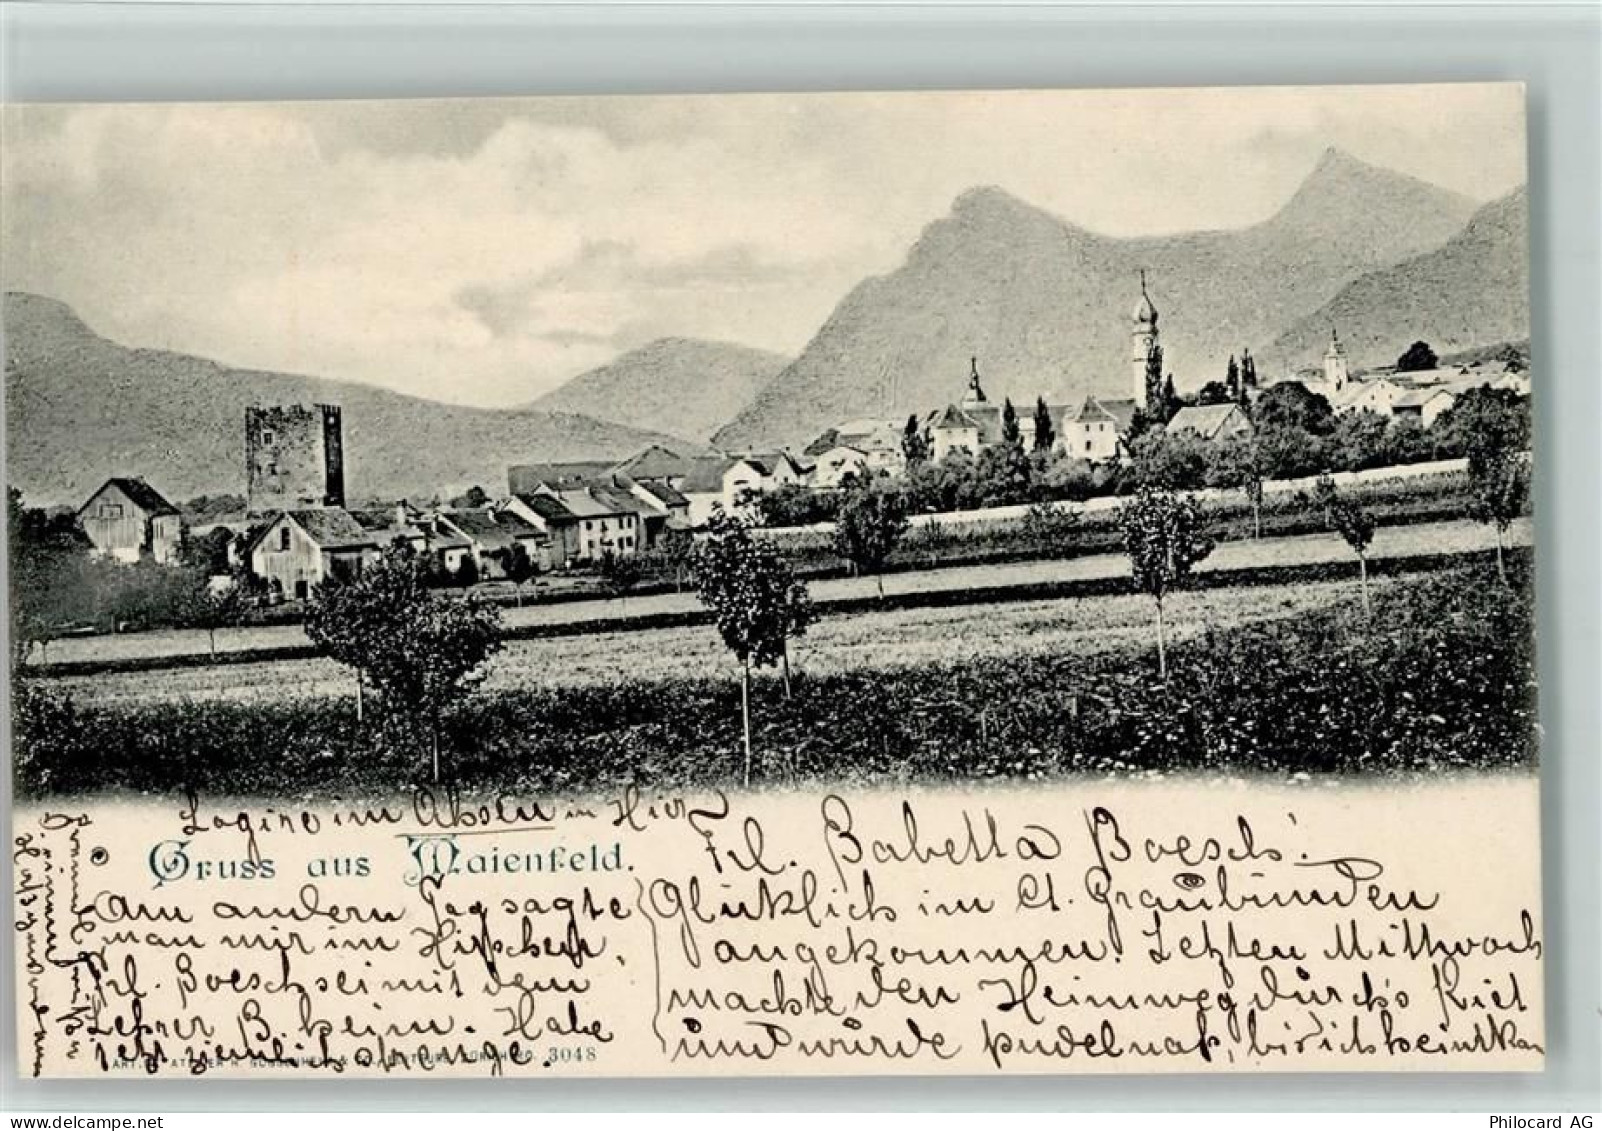 Logire im Ochsen in Hier
Gruss aus Maienfeld.
Am andern Tag sagte
man mir im Hirschen,
Frl. Boesch sei mit dem
Lehrer B. heim. Habe
jetzt ziemlich strenge.
3048
Frl. Babetta Boesch!
Glücklich im Ct. Graubünden
angekommen. Letzten Mittwoch
machte den Heimweg durch's Riet
und wurde pudelnass, bis ich heim kam
Philocard AG